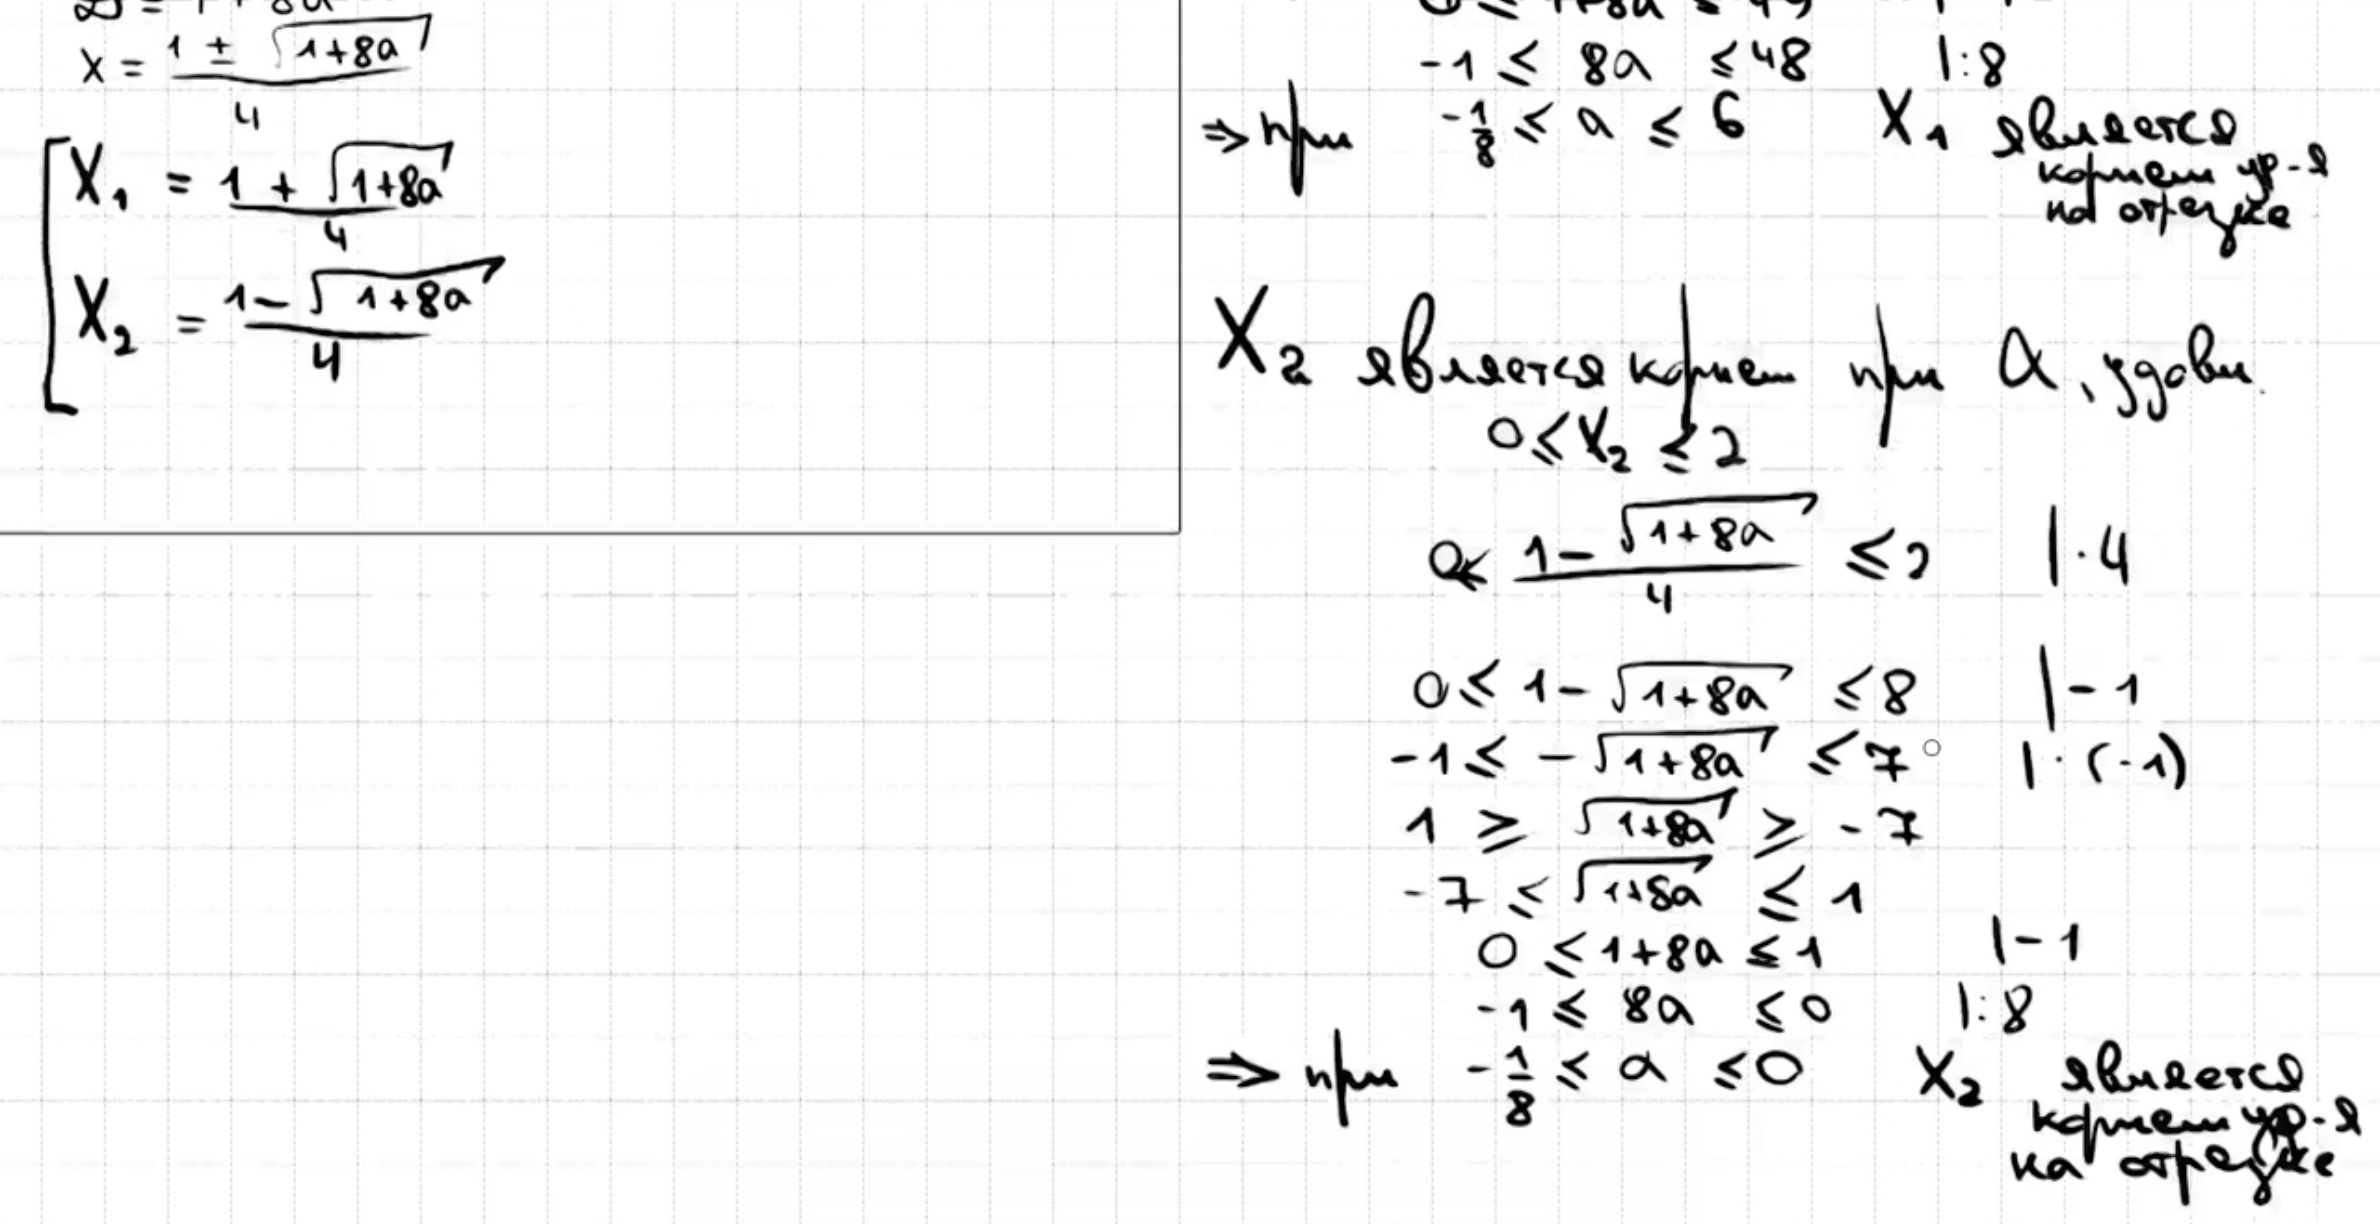 D = 1 + 8a
x = (1 ± √(1+8a)) / 4
[ X₁ = (1 + √(1+8a)) / 4
X₂ = (1 - √(1+8a)) / 4
0 ≤ 1+8a ≤ 49
-1 ≤ 8a ≤ 48 |:8
⇒ при -1/8 ≤ a ≤ 6 X₁ является
корнем ур-я
на отрезке
X₂ является корнем при a, удовл.
0 ≤ X₂ ≤ 2
0 ≤ (1 - √(1+8a)) / 4 ≤ 2 |·4
0 ≤ 1 - √(1+8a) ≤ 8 |-1
-1 ≤ -√(1+8a) ≤ 7 |·(-1)
1 ≥ √(1+8a) ≥ -7
-7 ≤ √(1+8a) ≤ 1
0 ≤ 1+8a ≤ 1 |-1
-1 ≤ 8a ≤ 0 |:8
⇒ при -1/8 ≤ a ≤ 0 X₂ является
корнем ур-я
на отрезке